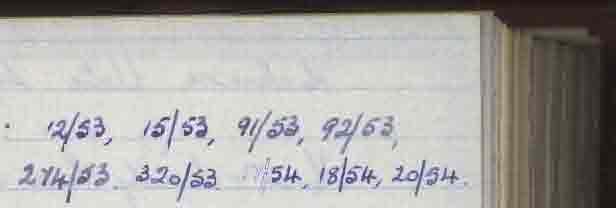 12/53, 15/53, 91/53, 92/53,
274/53. 320/53 /54, 18/54, 20/54.